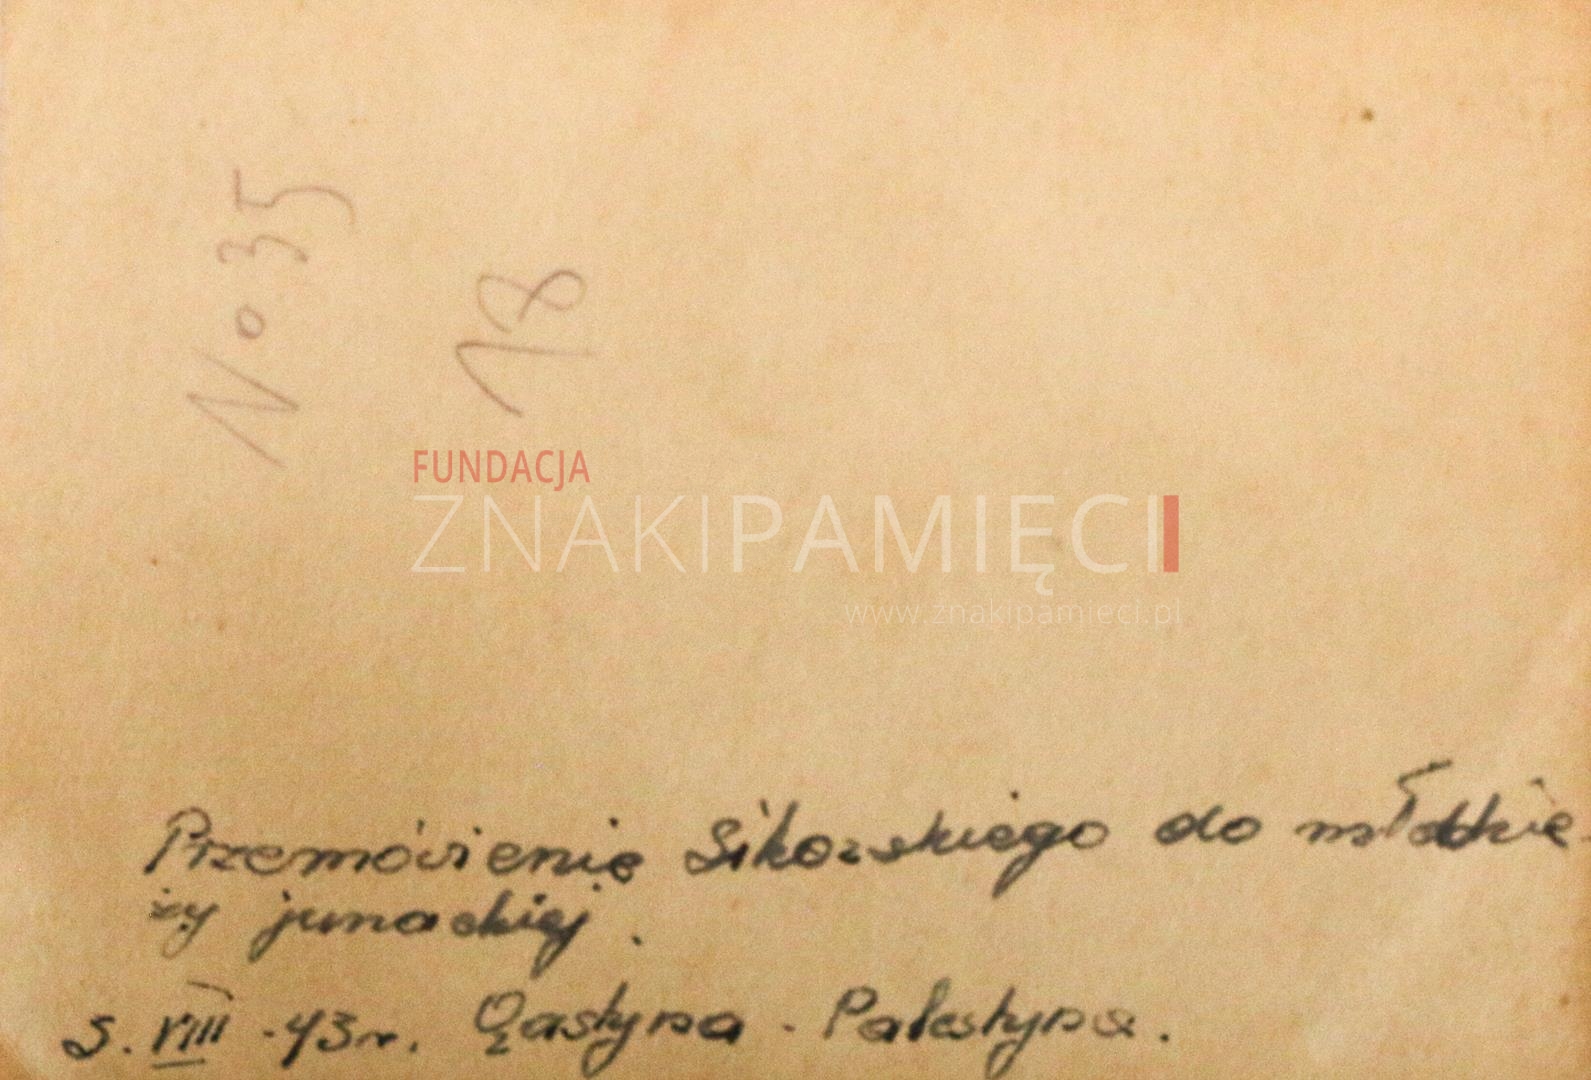 No 35
18
FUNDACJA
ZNAKIPAMIĘCI
www.znakipamieci.pl
Przemówienie Sikorskiego do młodzie-
ży junackiej.
5. VIII - 43 r. Qastyna - Palestyna.